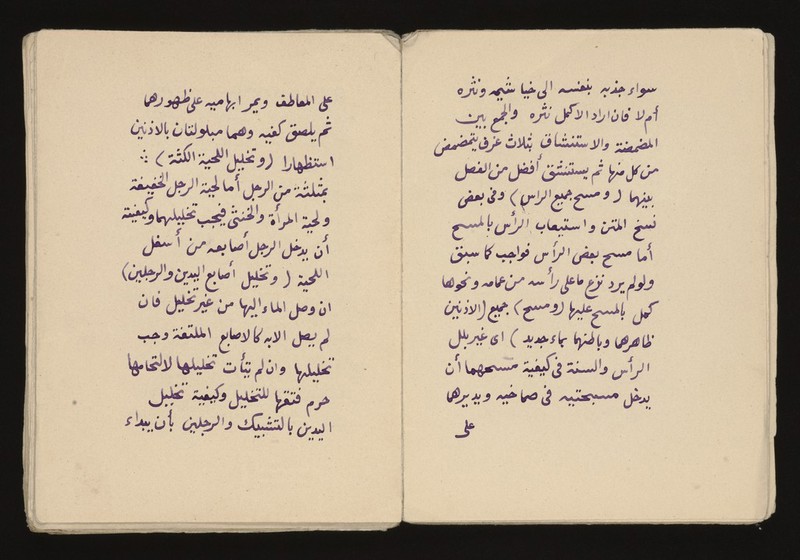 سواء جذبه بنفسه الى خياشيمه ونثره
أم لا فان اراد الاكمل نثره والجمع بين
المضمضة والاستنشاق بثلاث غرف يتمضمض
من كل منها ثم يستنشق أفضل من الفصل
بينهما (ومسح جميع الراس) وفى بعض
نسخ المتن واستيعاب الرأس بالمسح
أما مسح بعض الرأس فواجب كما سبق
ولو لم يرد نزع ما على رأسه من عمامه ونحوها
كمل بالمسح عليها (ومسح) جميع (الاذنين
ظاهرهما وباطنهما بماء جديد) اى غير بلل
الرأس والسنة فى كيفية مسحهما أن
يدخل مسبحتيه فى صماخيه ويديرهما
على
على المعاطف ويمر ابهاميه على ظهورهما
ثم يلصق كفيه وهما مبلولتان بالاذنين
استظهارا (وتخليل اللحية الكثة)
بمثلثة من الرجل أما لحية الرجل الخفيفة
ولحية المرأة والخنثى فيجب تخليلهما وكيفيته
أن يدخل الرجل أصابعه من أسفل
اللحية (وتخليل أصابع اليدين والرجلين)
ان وصل الماء اليها من غير تخليل فان
لم يصل الا به كالاصابع الملتفة وجب
تخليلها وان لم يتأت تخليلها لالتحامها
حرم فتقها للتخليل وكيفية تخليل
اليدين بالتشبيك والرجلين بأن يبداء